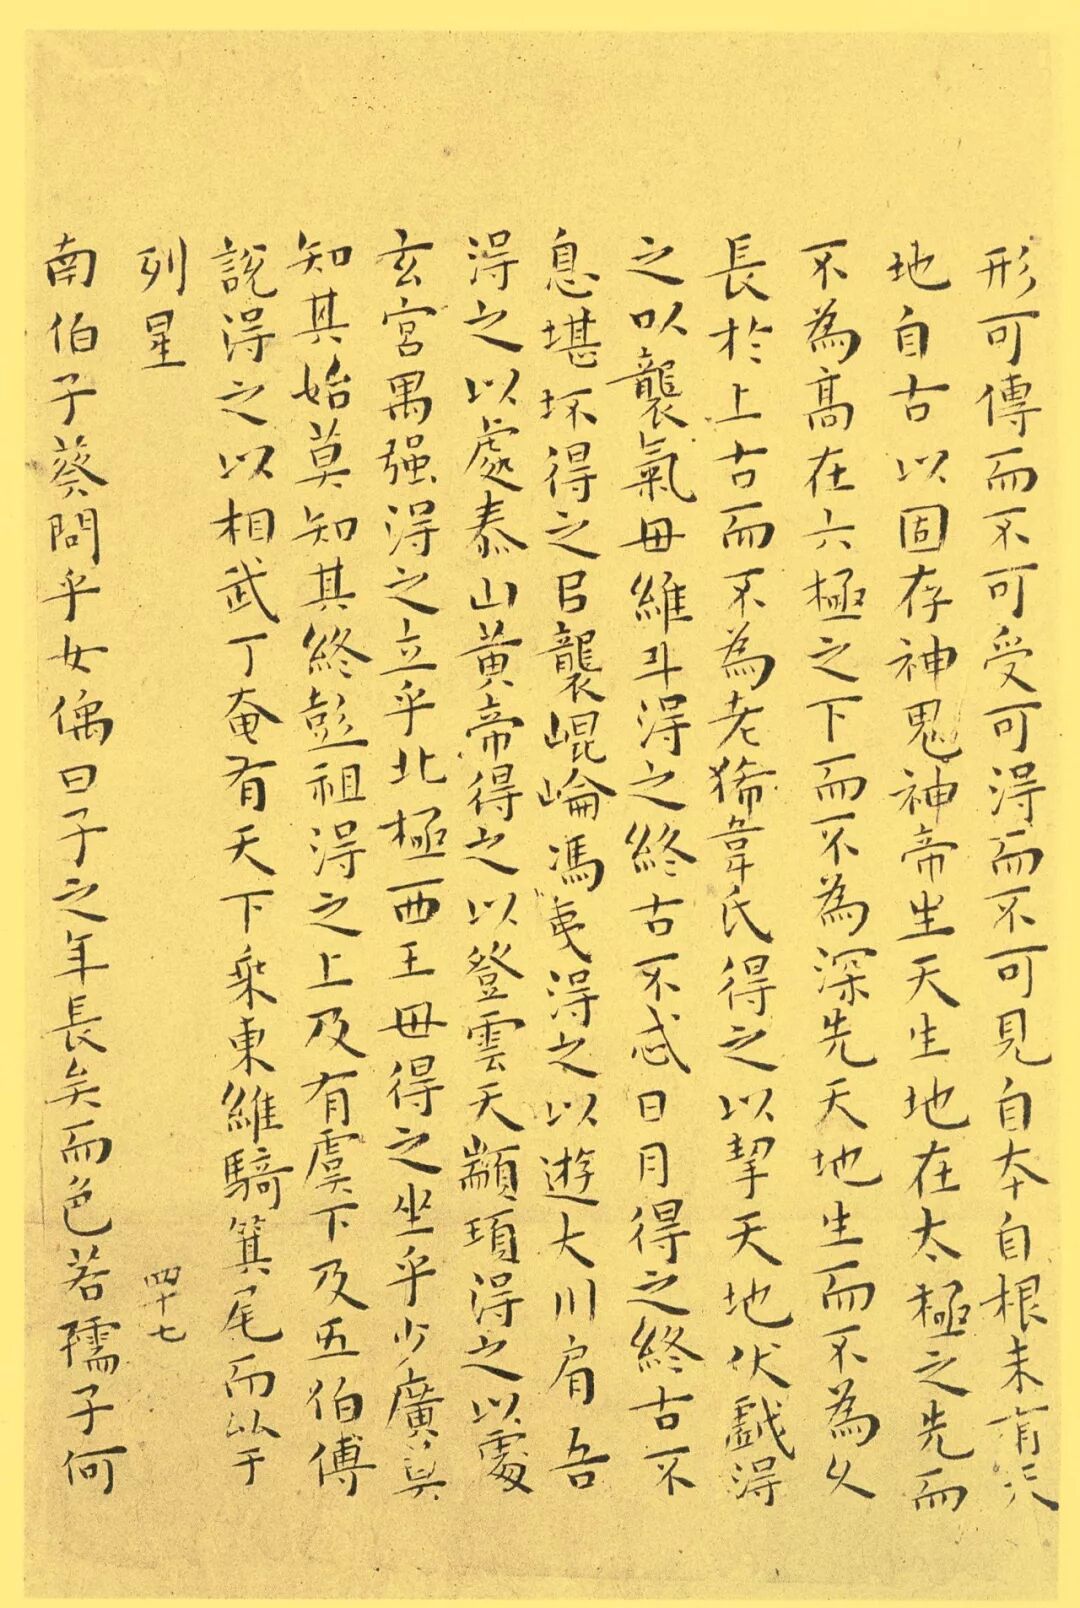 形可傳而不可受可得而不可見自本自根未有天
地自古以固存神鬼神帝生天生地在太極之先而
不為高在六極之下而不為深先天地生而不為久
長於上古而不為老狶韋氏得之以挈天地伏戲得
之以襲氣母維斗得之終古不忒日月得之終古不
息堪坏得之㠯襲崐崘馮夷得之以遊大川肩吾
得之以處泰山黃帝得之以登雲天顓頊得之以處
玄宮禺强得之立乎北極西王母得之坐乎少廣莫
知其始莫知其終彭祖得之上及有虞下及五伯傅
說得之以相武丁奄有天下乘東維騎箕尾而比于
列星
四十七
南伯子葵問乎女偊曰子之年長矣而色若孺子何